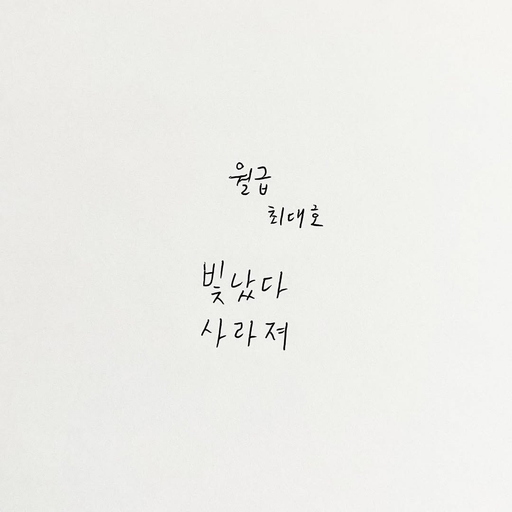 월급
최대호
빛났다
사라져